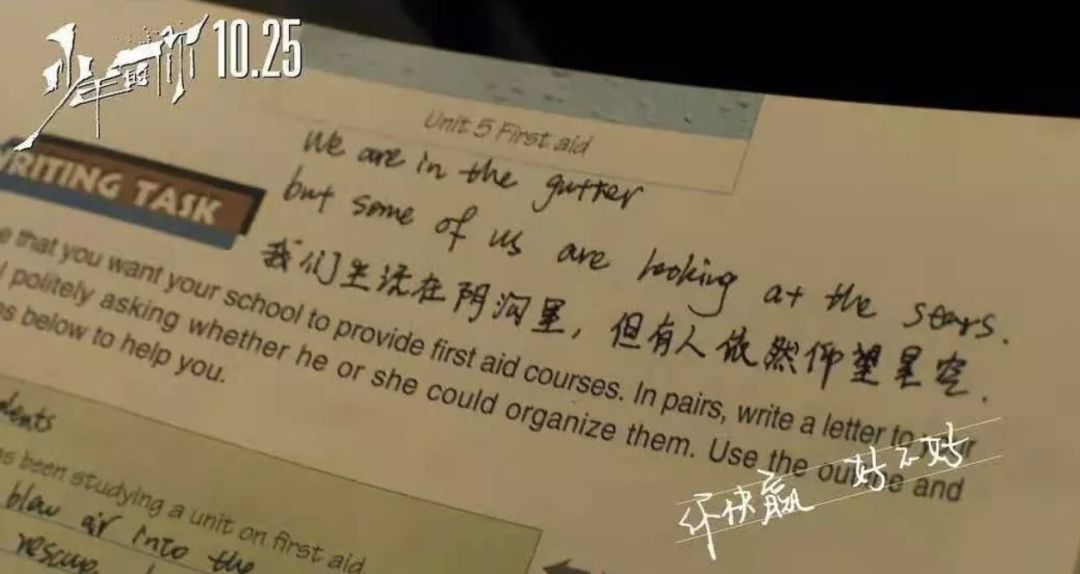 少年的你 10.25
Unit 5 First aid
We are in the gutter
WRITING TASK
but some of us are looking at the stars.
我们生活在阴沟里，但有人依然仰望星空.
e that you want your school to provide first aid courses. In pairs, write a letter to your
politely asking whether he or she could organize them. Use the outline and
s below to help you.
你快赢 好不好
dents
s been studying a unit on first aid
blow air into the
rescue